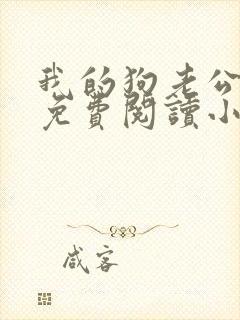 我的狗老公
免費閱讀小
咸客